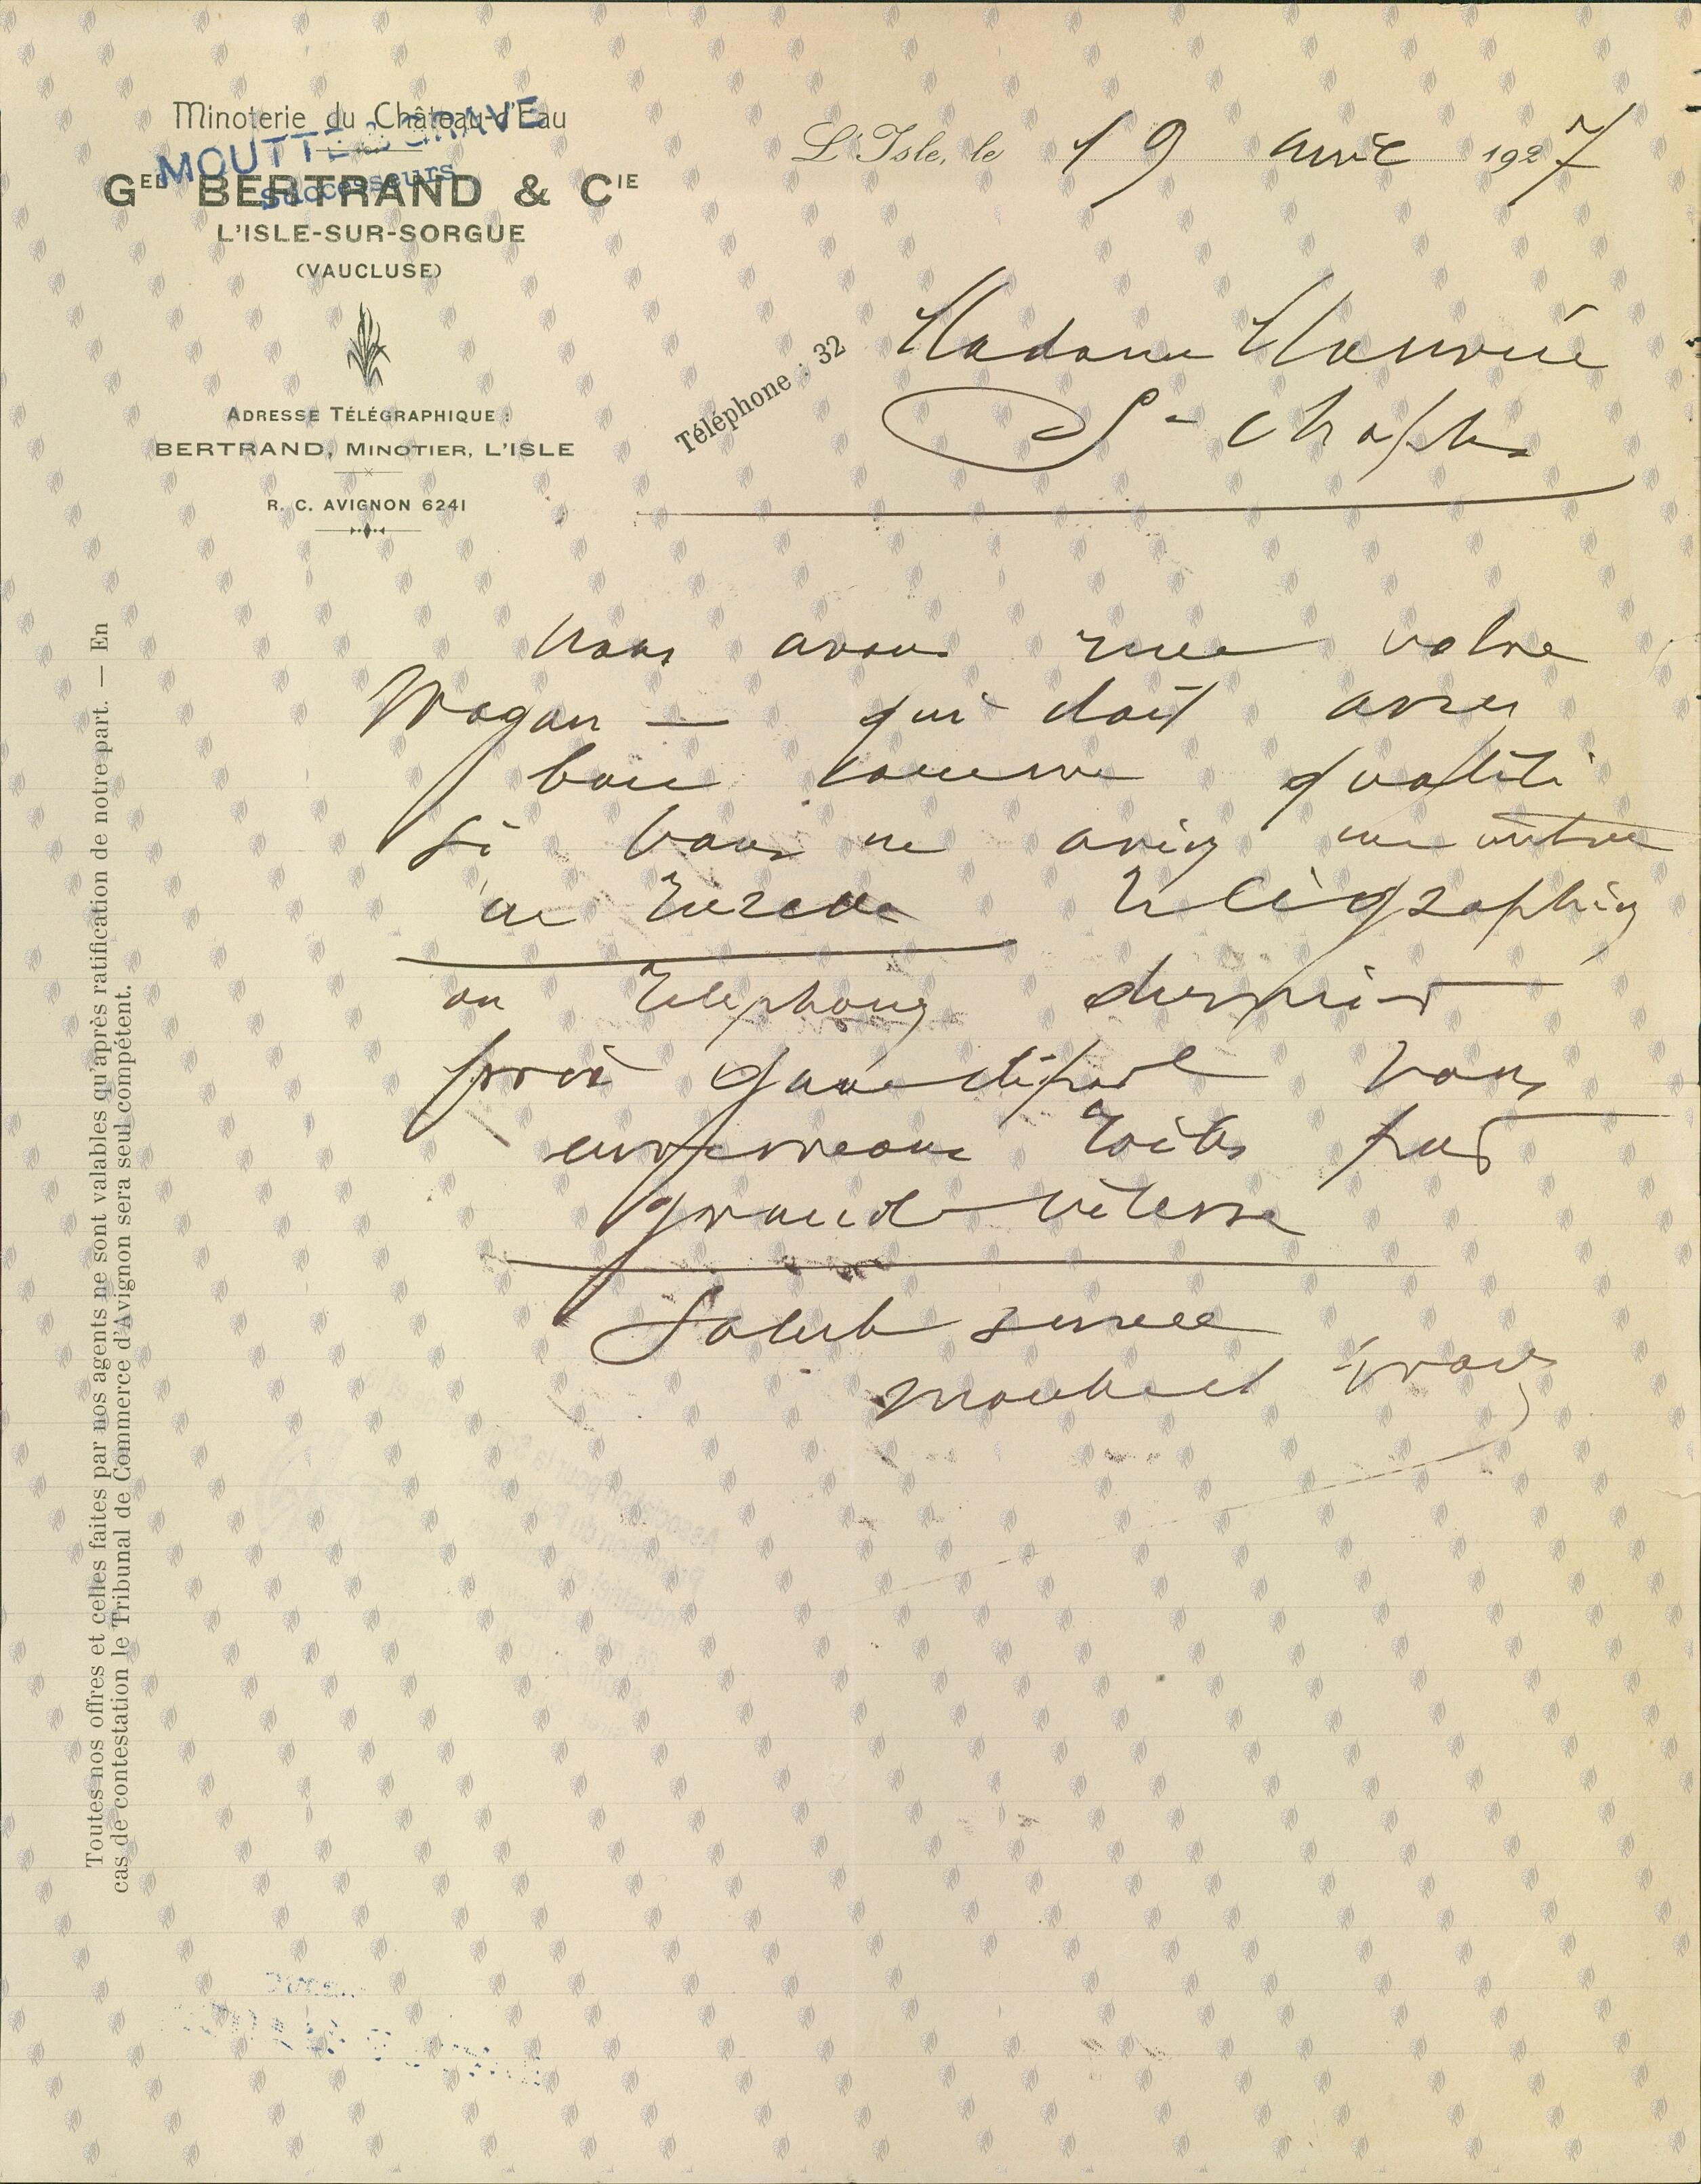 Minoterie du Château-d'Eau
MOUTTE & GRAVE
Successeurs
GED BERTRAND & CIE
L'ISLE-SUR-SORGUE
(VAUCLUSE)
ADRESSE TÉLÉGRAPHIQUE :
BERTRAND, MINOTIER, L'ISLE
R. C. AVIGNON 6241
Téléphone : 32
L'Isle, le 19 avril 1927
Madame
St Chaptes
Nous avons votre
Wagon — qui doit
bon comme qualité
Si vous en aviez un autre
en télégraphiez
ou téléphonez dernier
prix gare départ vous
enverrons toiles par
grande vitesse
Salut
Toutes nos offres et celles faites par nos agents ne sont valables qu'après ratification de notre part. — En
cas de contestation le Tribunal de Commerce d'Avignon sera seul compétent.